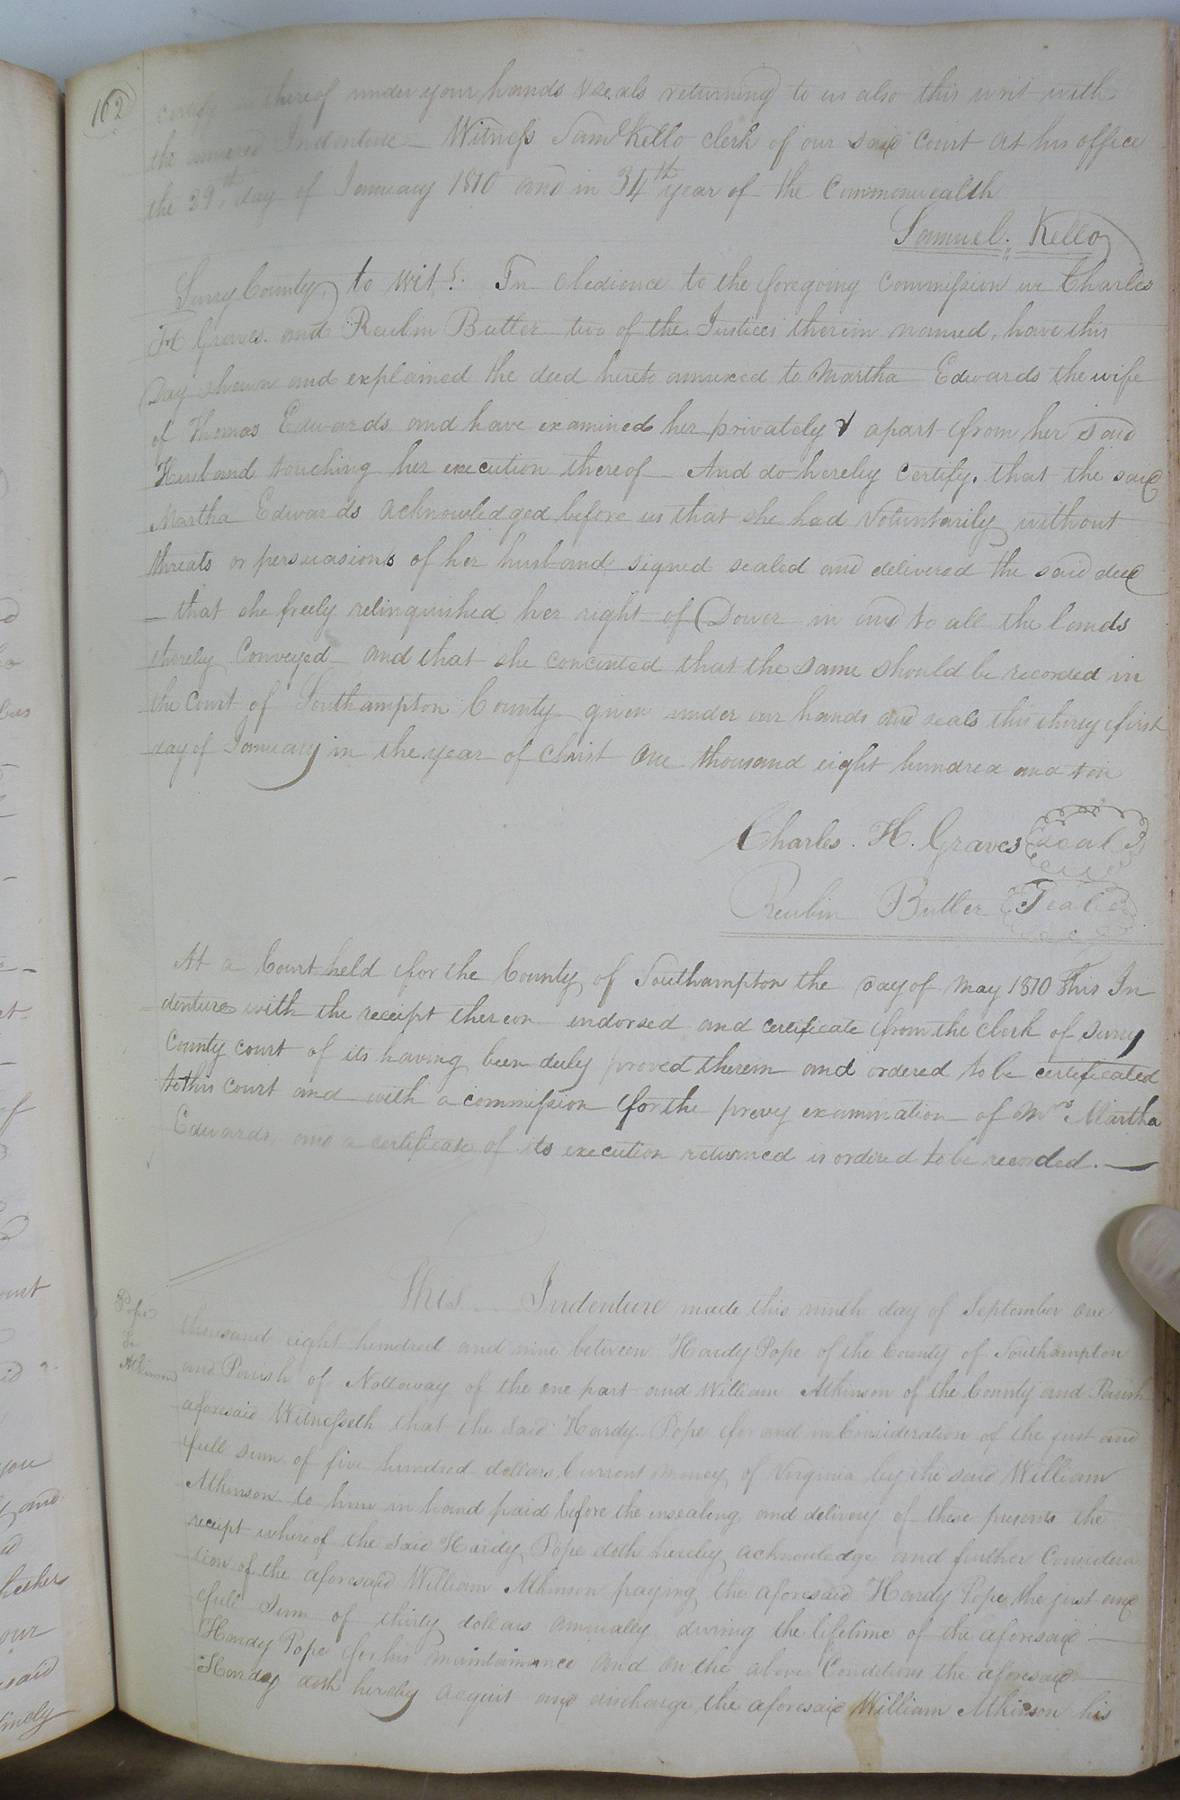 102
certify us thereof under your hands & seals returning to us also this writ with
the annexed Indenture — Witness Saml Kello clerk of our said court at his office
the 29th day of January 1810 and in 34th year of the Commonwealth
Samuel. Kello
Surry County, to wit: In obedience to the foregoing commission we Charles
H Graves. and Reubin Butler two of the Justices therein named, have this
Day shewn and explained the deed hereto annexed to Martha Edwards the wife
of Thomas Edwards and have examined her privately & apart from her said
Husband touching her execution thereof — And do hereby certify, that the said
Martha Edwards acknowledged before us that she had voluntarily without
threats or persuasions of her husband signed sealed and delivered the said deed
— that she freely relinquished her right of Dower in and to all the lands
thereby Conveyed and that she concented that the same should be recorded in
the Court of Southampton County given under our hands and seals this thirty first
day of January in the year of christ one thousand eight hundred and ten
Charles. H. Graves Seal
Reubin Butler Seal
At a Court held for the County of Southampton the day of May 1810 This In
denture with the receipt thereon endorsed and certificate from the Clerk of Surry
County court of its having been duly proved therein and ordered to be certificated
to this court and with a commission for the privy examination of Mrs Martha
Edwards and a certificate of its execution returned is ordered to be recorded. —
This Indenture made this ninth day of September one
Pope
To
Atkinson
thousand eight hundred and nine between Hardy Pope of the County of Southampton
and Parish of Nottoway of the one part and William Atkinson of the County and Parish
aforesaid Witnesseth that the said Hardy Pope for and in Consideration of the just and
full sum of five hundred dollars Current money of Virginia by the said William
Atkinson to him in hand paid before the ensealing and delivery of these presents the
receipt whereof the said Hardy Pope doth hereby acknowledge and further Considera
tion of the aforesaid William Atkinson paying the aforesaid Hardy Pope the just and
full Sum of thirty dollars annually during the lifetime of the aforesaid —
Hardy Pope for his maintainance and on the above Conditions the aforesaid —
Harday doth hereby acquit and discharge the aforesaid William Atkinson his